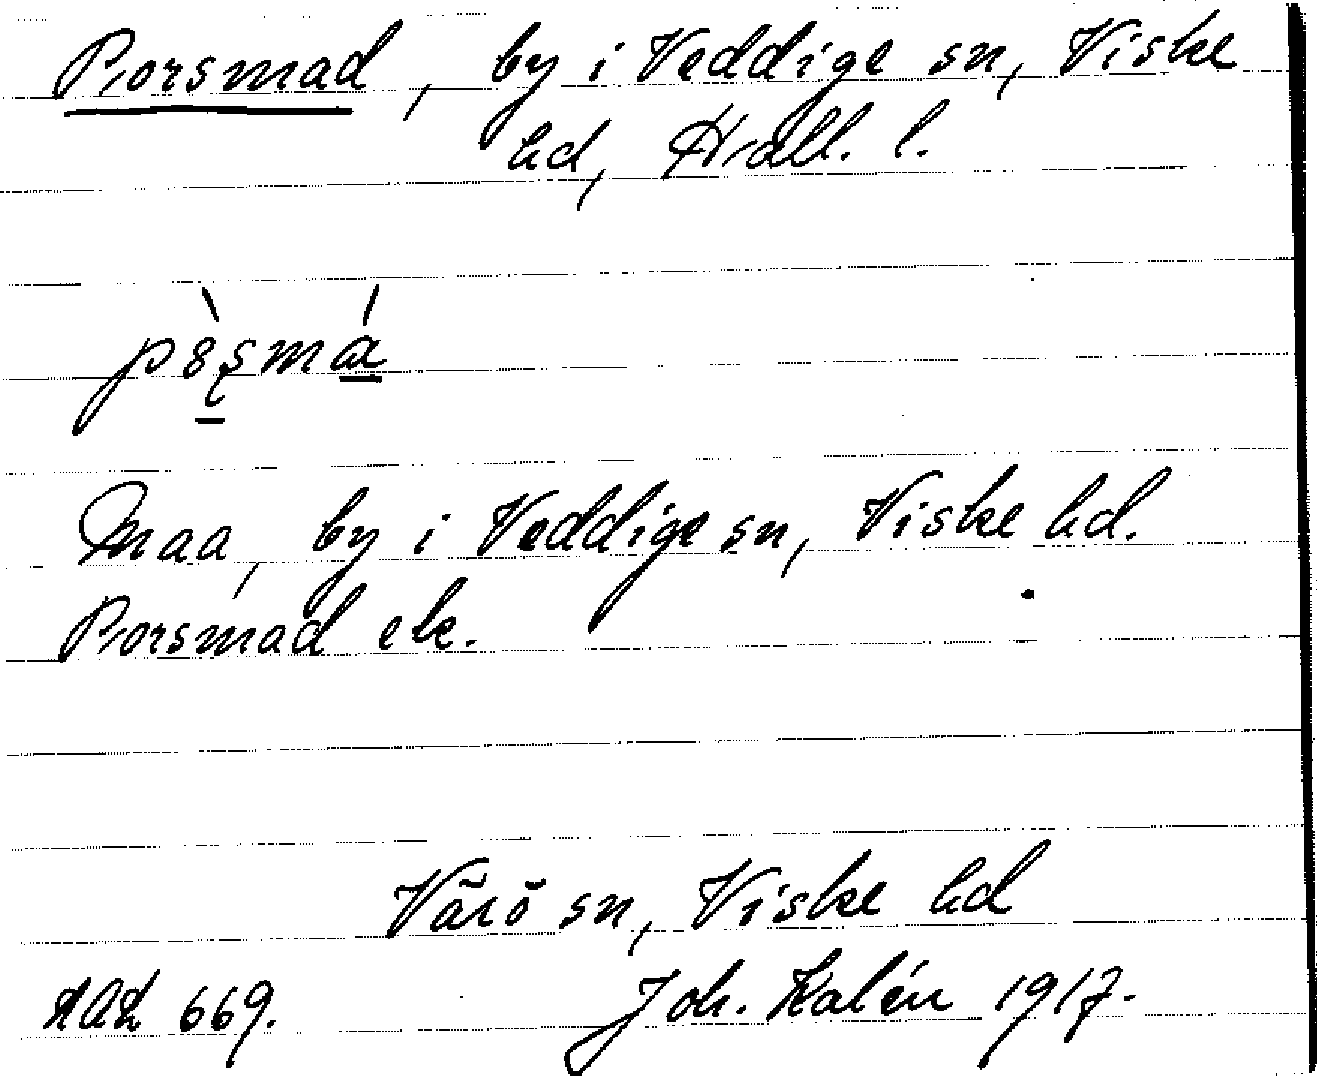 Porsmad, by i Veddige sn, Viske
hd, Hall. l.
Maa, by i Veddige sn, Viske hd.
Porsmad etc.
Värö sn, Viske hd
669. Joh. Kalén 1917.